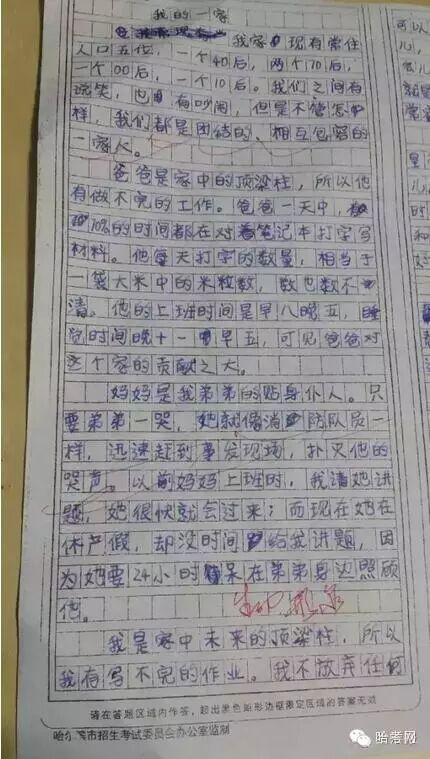 我的一家
我家现有常住
人口五位,一个40后,两个70后,
一个00后,一个10后。我们之间有
说笑,也有吵闹,但是不管怎
样,我们都是团结的、相互包容的
一家人。
爸爸是家中的顶梁柱,所以他
有做不完的工作。爸爸一天中,
70%的时间都在对着笔记本打字写
材料。他每天打字的数量,相当于
一袋大米中的米粒数,数也数不
清。他的上班时间是早八晚五,睡
觉时间晚十一早五,可见爸爸对
这个家的贡献之大。
妈妈是我弟弟的贴身仆人。只
要弟弟一哭,她就像消防队员一
样,迅速赶到事发现场,扑灭他的
哭声。以前妈妈上班时,我请她讲
题,她很快就会过来;而现在她在
休产假,却没时间给我讲题,因
为她要24小时呆在弟弟身边照顾
他。
生动形象
我是家中未来的顶梁柱,所以
我有写不完的作业。我不放弃任何
请在答题区域内作答,超出黑色矩形边框限定区域的答案无效
哈尔滨市招生考试委员会办公室监制
可以
儿,
胎考网